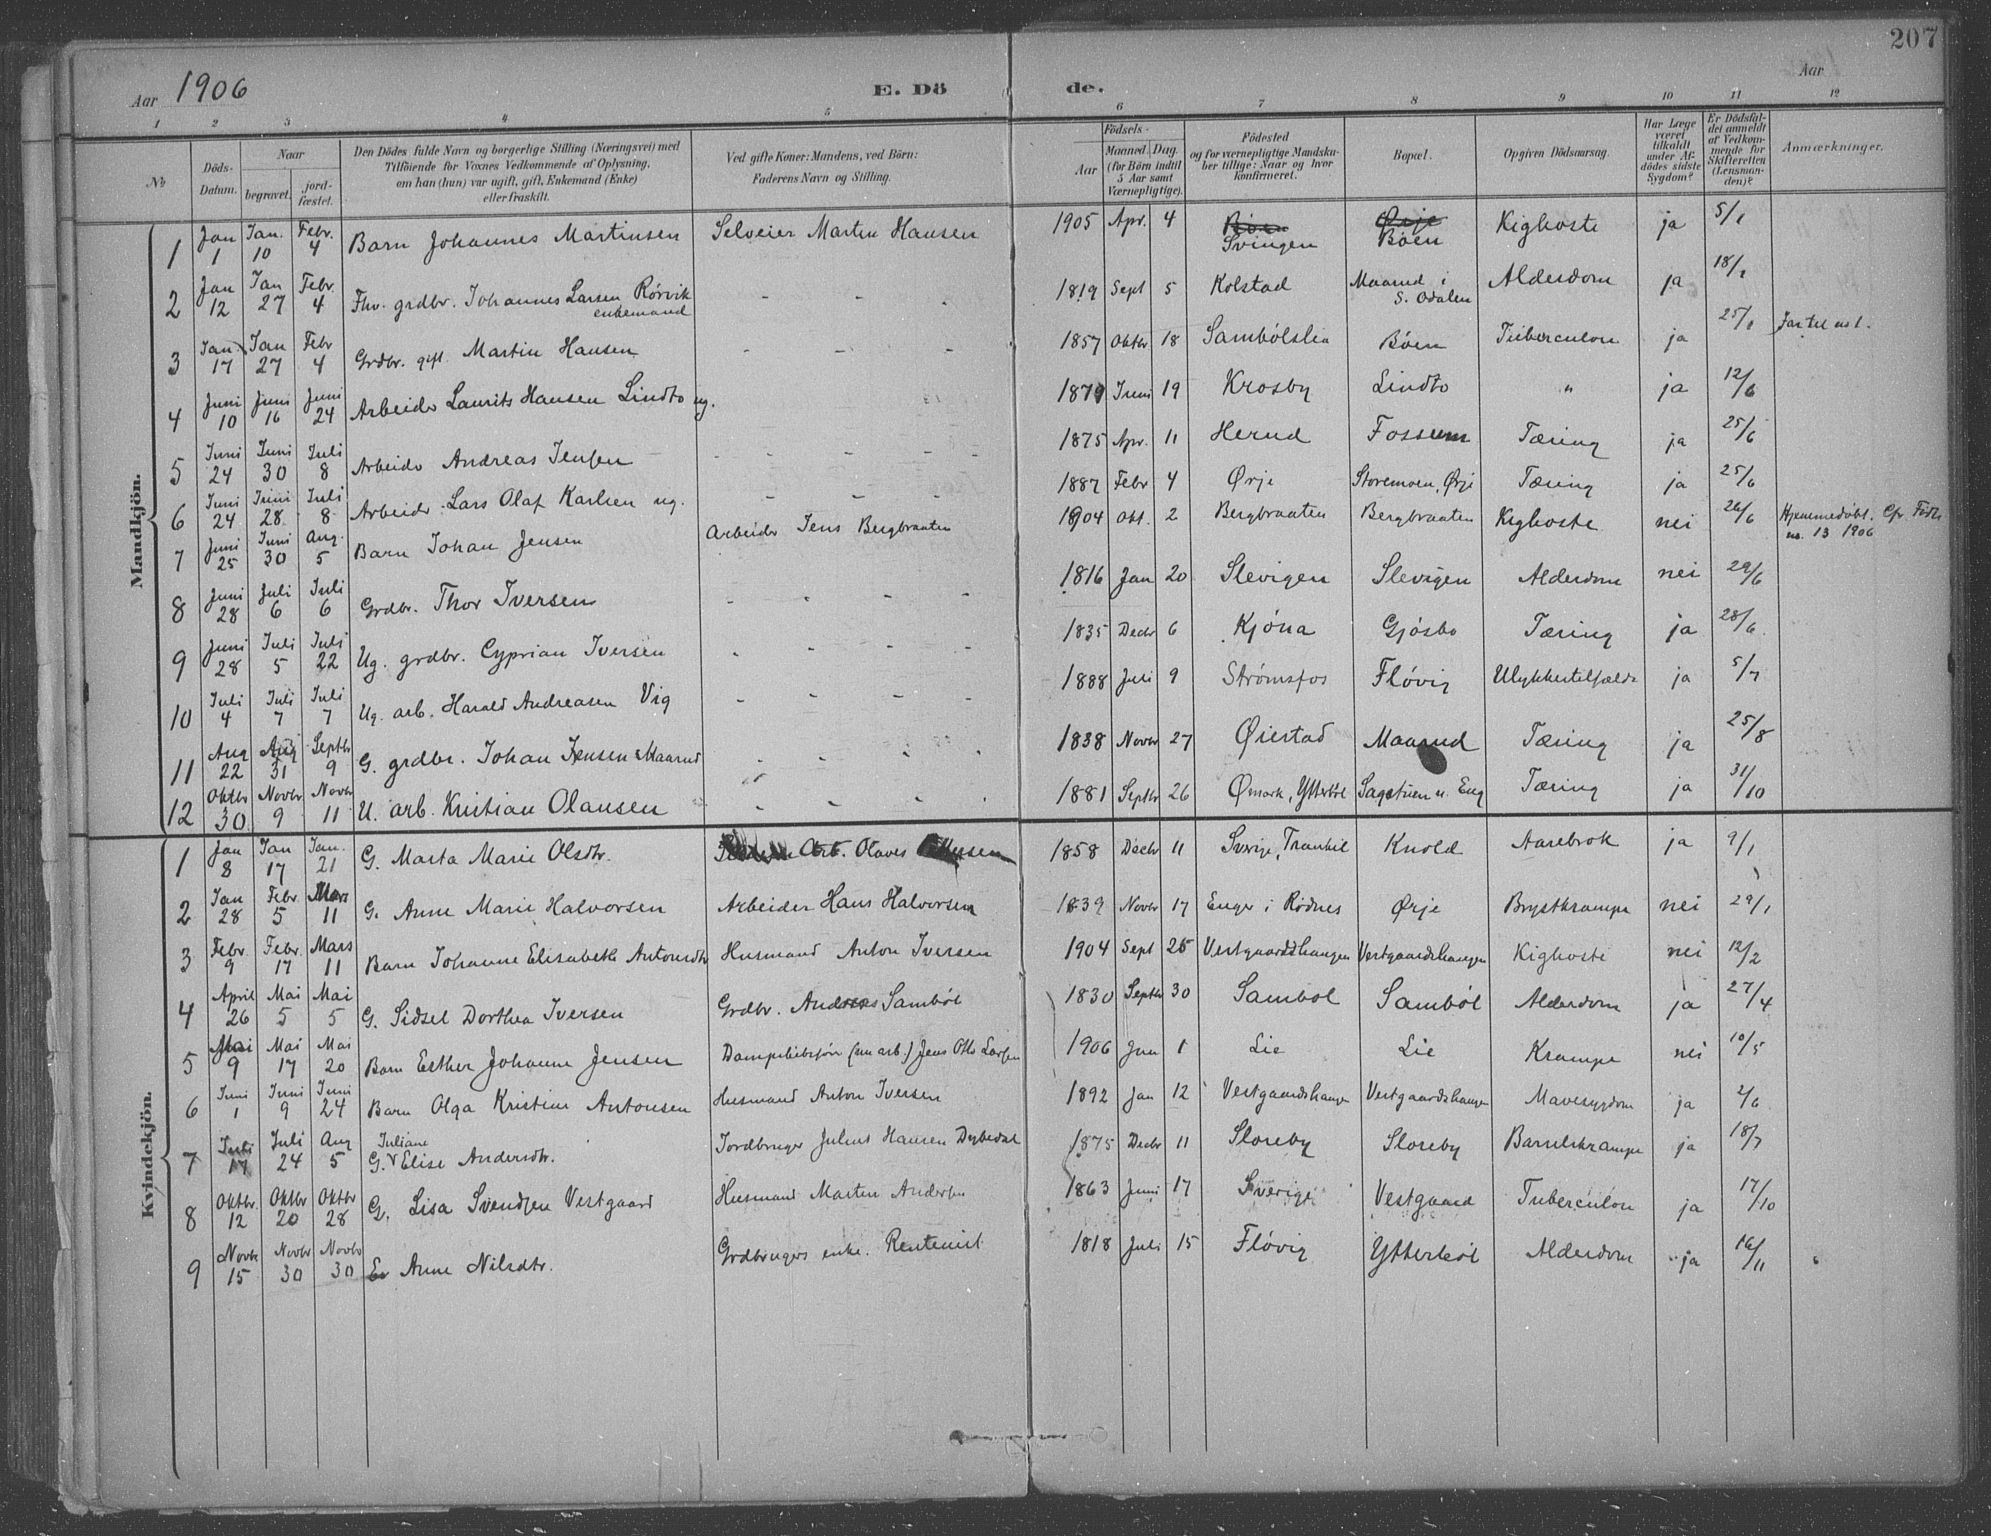 207
Aar 1906 E. Dö de. Aar
1 2 3 4 5 6 7 8 9 10 11 12
№ Döds-Datum. Naar begravet. jord-fæstet. Den Dödes fulde Navn og borgerlige Stilling (Næringsvei) med Tilföiende for Voxnes Vedkommende af Oplysning, om han (hun) var ugift, gift, Enkemand (Enke) eller fraskilt. Ved gifte Koner: Mandens, ved Börn: Faderens Navn og Stilling. Födsels- Aar Maaned. Dag. (for Börn indtil 5 Aar samt Værnepligtige). Födested og for værnepligtige Mandsku-ber tillige: Naar og hvor konfirmeret. Bopæl. Opgiven Dödsaarsag. Har Læge været tilkaldt under Af-dödes sidste Sygdom? Er Dödsfal-det anmeldt af Vedkom-mende for Skifteretten (Lensman-den)? Anmærkninger.
Mandkjön.
1 Jan 1 Jan. 10 Febr. 4 Barn Johannes Martinsen Selveier Martin Hansen 1905 Apr. 4 Böen Svingen Ørje Böen Kighoste ja 5/1
2 Jan 12 Jan 27 Febr. 4 Fhv. grdbr. Johannes Larsen Rörvik enkemand 1819 Sept 5 Kolstad Maarud i S. Odalen Alderdom ja 18/1
3 Jan 17 Jan 27 Febr 4 Grdbr. gift. Martin Hansen 1857 Oktbr 18 Sambölslia Böen Tuberculon ja 25/1
4 Juni 10 Juni 16 Juni 24 Arbeider Laurits Hansen Lindto ug. 1879 Juni 19 Krosby Lindto " ja 12/6
5 Juni 24 Juni 30 Juli 8 Arbeider Andreas Jensen 1875 Apr. 11 Herud Fossum Tæring ja 25/6
6 Juni 24 Juni 28 Juli 8 Arbeider Lars Olaf Karlsen ug. 1887 Febr 4 Ørje Storemoen, Ørje Tæring ja 25/6
7 Juni 25 Juni 30 Aug. 5 Barn Johan Jensen Arbeider Jens Bergbraaten 1904 Okt. 2 Bergbraaten Bergbraaten Kighoste nei 26/6 Hjemmedöbt. Cfr. Födte no. 13 1906
8 Juni 28 Juli 6 Juli 6 Grdbr. Thor Iversen 1816 Jan 20 Slevigen Slevigen Alderdom nei 29/6
9 Juni 28 Juli 5 Juli 22 Ug. grdbr. Cyprian Iversen 1835 Decbr 6 Kjöna Gjösbo Tæring ja 28/6
10 Juli 4 Juli 7 Juli 7 Ug. arb. Harald Andreasen Vig 1888 Juli 9 Strömsfos Flövig Ulykkestilfælde ja 5/7
11 Aug 22 Aug 31 Septbr 9 G. grdbr. Johan Jensen Maarud 1838 Novbr 27 Øiestad Maarud Tæring ja 25/8
12 Oktbr 30 Novbr 9 Novbr 11 U. arb. Kristian Olausen 1881 Septbr 26 Ømark, Ytterböl Sagstuen u. Eng Tæring ja 31/10
Kvindekjön.
1 Jan 8 Jan 17 Jan. 21 G. Marta Marie Olsdtr. Arb. Olaves 1858 Decbr 11 Sverige, Trankil Knold Aarebrok ja 9/1
2 Jan 28 Febr 5 Mars 11 G. Anne Marie Halvorsen Arbeider Hans Halvorsen 1839 Novbr 17 Enger i Rödnes Ørje Brystkrampe nei 29/1
3 Febr 9 Febr. 17 Mars 11 Barn Johanne Elisabeth Antonsdtr Husmand Anton Iversen 1904 Sept 25 Vestgaardshaugen Vestgaardshaugen Kighoste nei 12/2
4 April 26 Mai 5 Mai 5 G. Sidsel Dorthea Iversen Grdbr. Andreas Samböl 1830 Septbr 30 Samböl Samböl Alderdom ja 27/4
5 Mai 9 Mai 17 Mai 20 Barn Esther Johanne Jensen Jens Otto Larsen 1906 Jan 1 Lie Lie Krampe nei 10/5
6 Juni 1 Juni 9 Juni 24 Barn Olga Kristine Antonsen Husmand Anton Iversen 1892 Jan 12 Vestgaardshaugen Vestgaardshaugen Mavesygdom ja 2/6
7 Juli 17 Juli 24 Aug 5 G. Juliane Elise Andersdtr. Jordbruger Julius Hansen Dybedal 1875 Decbr 11 Sloreby Sloreby Barselskrampe ja 18/7
8 Oktbr. 12 Oktbr 20 Oktbr 28 G. Lisa Svendsen Vestgaard Husmand Martin Andersen 1863 Juni 17 Sverige Vestgaard Tuberculon ja 17/10
9 Novbr 15 Novbr 30 Novbr 30 E. Anne Nilsdtr. Grdbrugers enke. Rentenist 1818 Juli 15 Flövig Ytterböl Alderdom ja 16/11